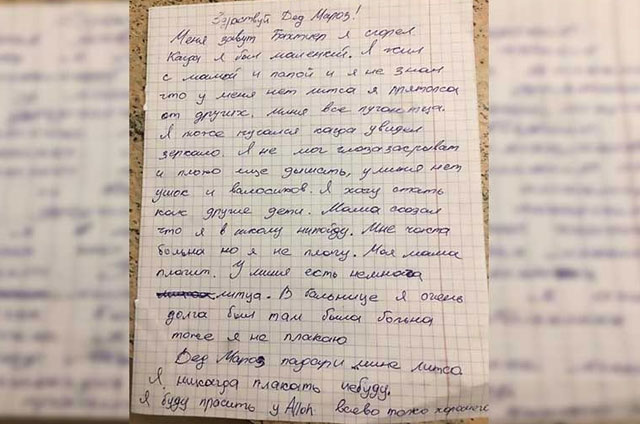 Здраствуй Дед Мароз!
Меня завут Бахтиер я сгорел
Кагда я был маленкий. Я жил
с мамой и папой и я не знал
что у меня нет литса я пряталса
от других. миня все пугаютца.
Я тоже пугался кагда увидел
зеркало. Я не мог глаза закрыват
и плохо ище дышать, у миня нет
ушок и валосиков. Я хочу стать
как другие дети. Мама сказал
что я в школу нипойду. Мне часта
больна но я не плачу. Моя мама
плачит. У миня есть немнога
литца. В больнице я очень
долга был там была больна
тоже я не плакаю
Дед Мароз падари мине литсо
Я никагда плакать небуду.
Я буду прасить у Alloh всево тоже харошего